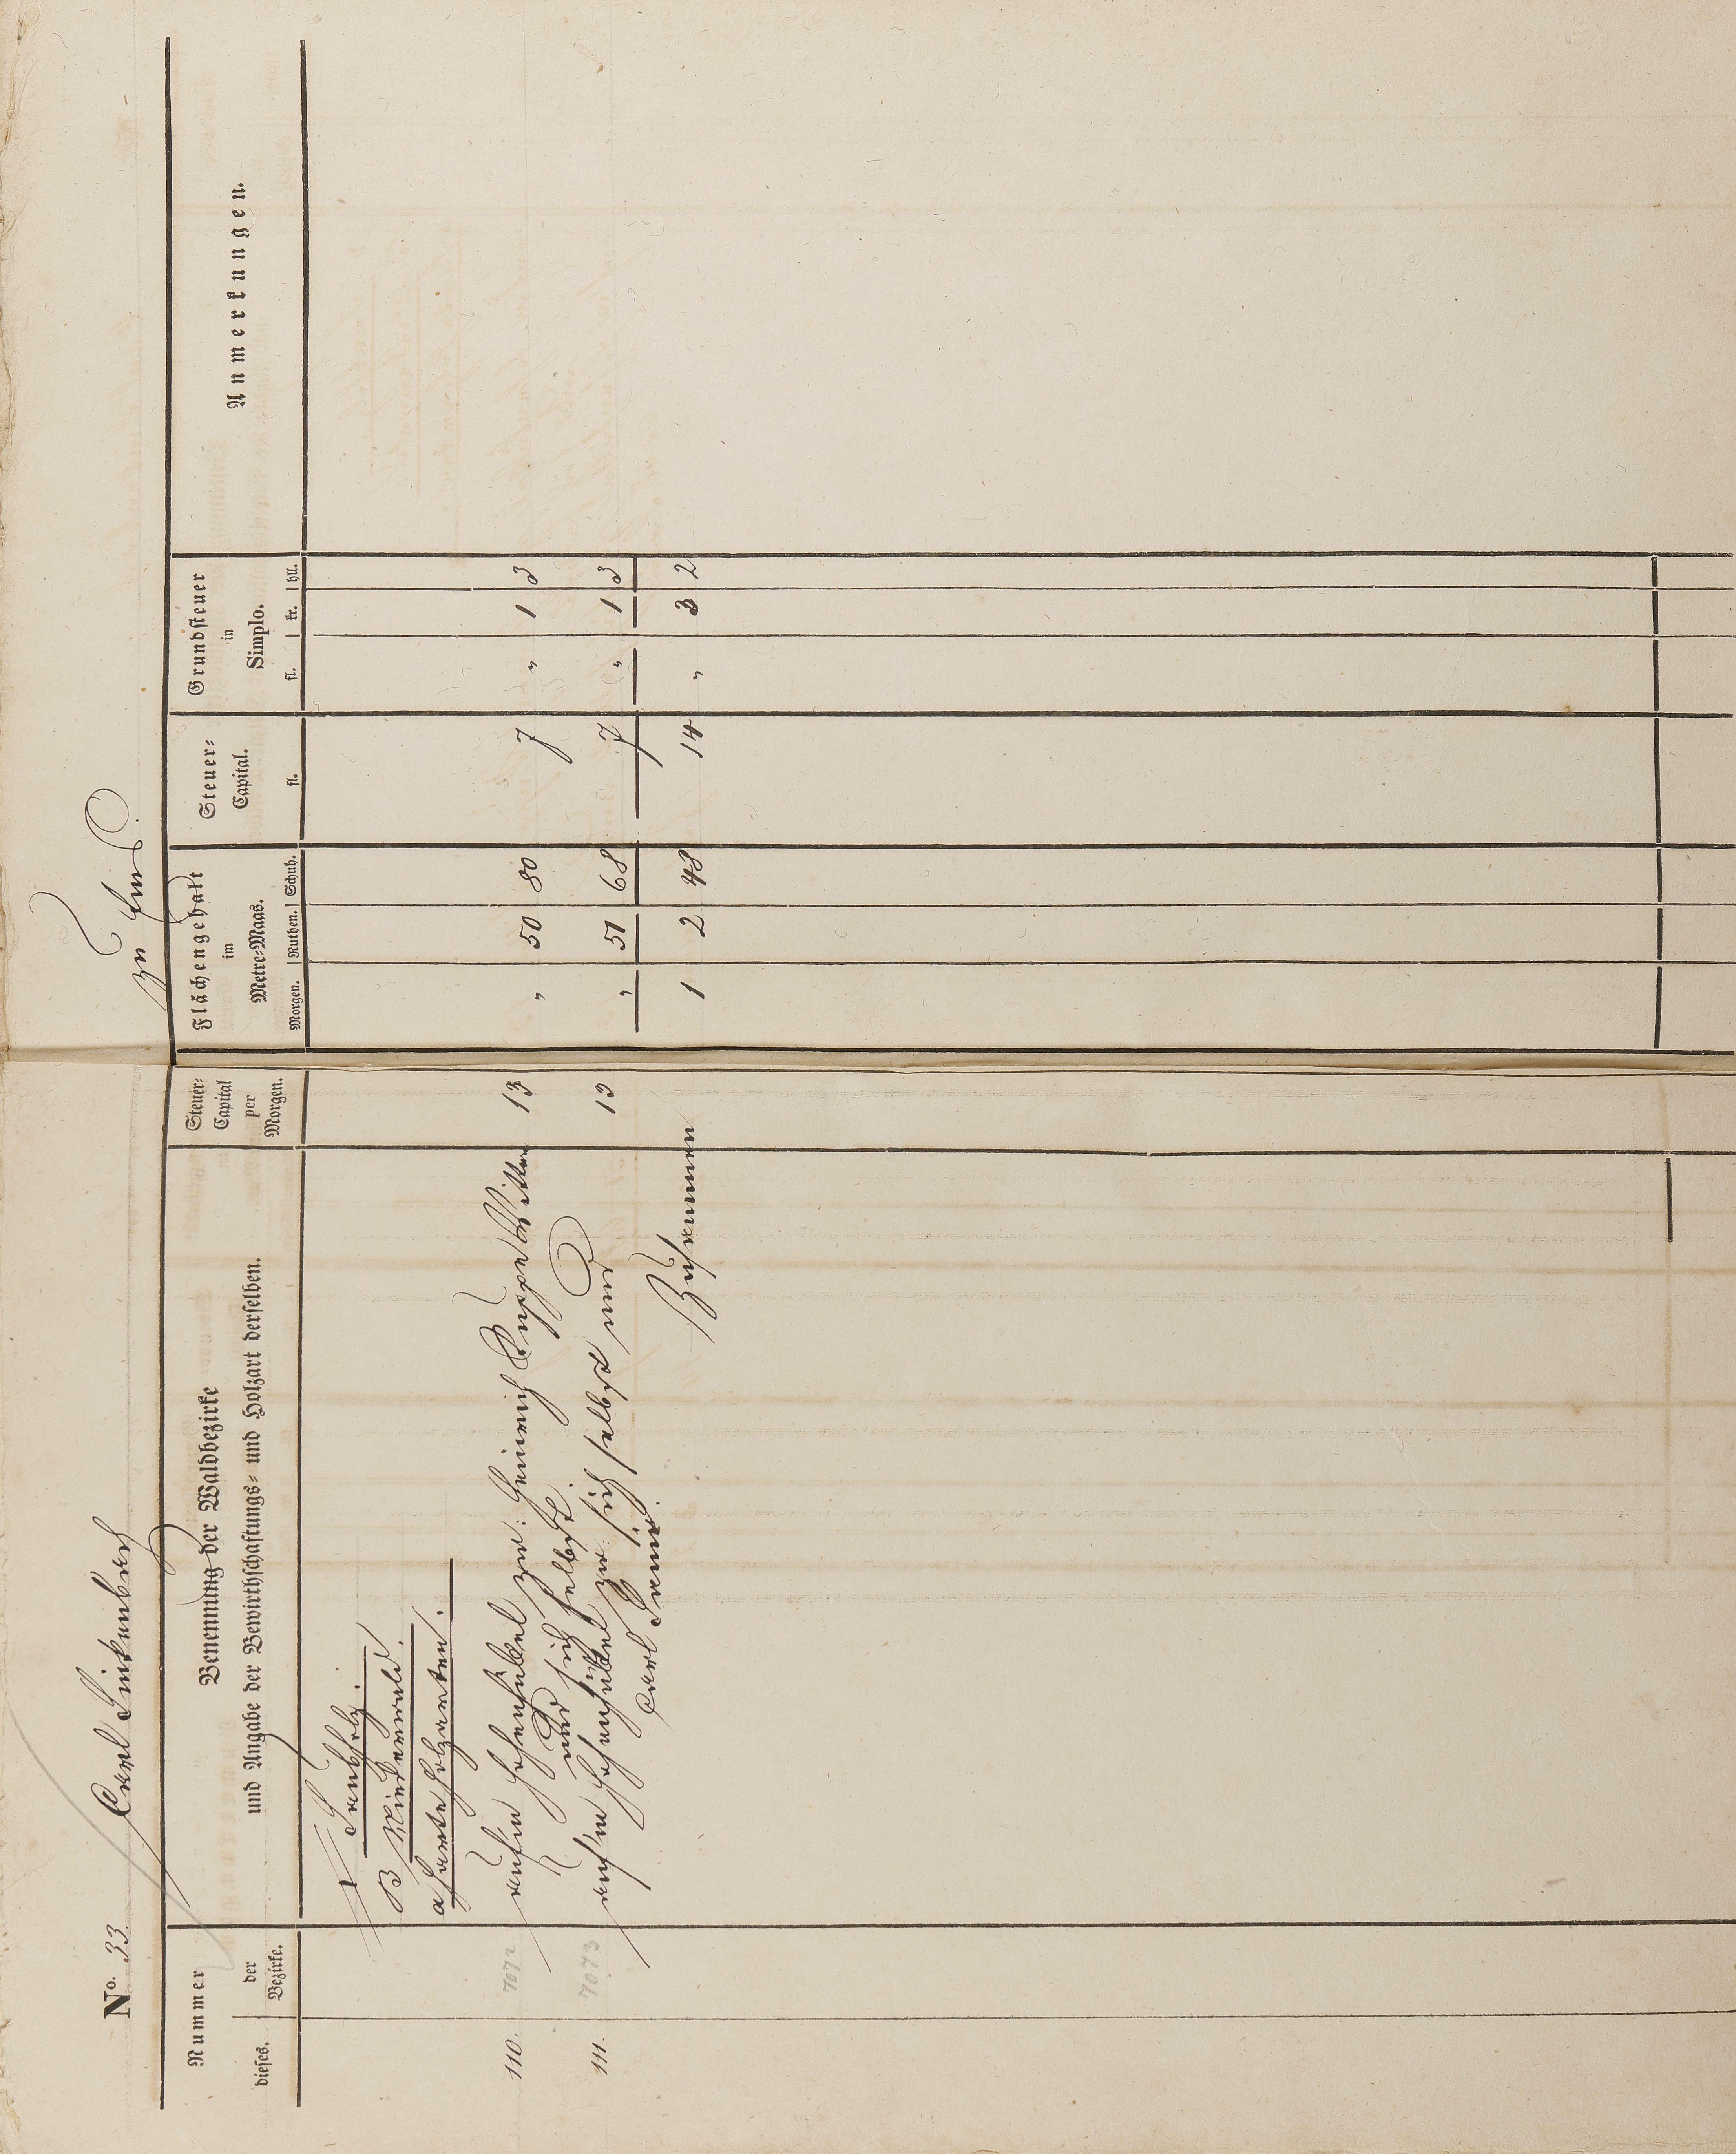 No. 33. Carl Linkenbach zu Ems.
Nummer
dieses.
der Bezirke.
Benennung der Waldbezirke
und Angabe der Bewirthschaftungs- und Holzart derselben.
Steuer-
Capital
per
Morgen.
Flächengehalt
im
Metre-Maas.
Morgen. Ruthen. Schuh.
Steuer-
Capital.
fl.
Grundsteuer
in
Simplo.
fl. kr. hll.
Anmerkungen.
I Laubholz.
B Niederwald.
a harte Holzarten.
110. 7072 auf'm Hohenhübel zw: Heinrich 13 " 50 80 7 " 1 3
und sich selbst.
111. 7073 auf'm Hohenhübel zw: sich selbst und 13 " 51 68 7 " 1 3
Carl
Zusammen 1 2 48 14 " 3 2